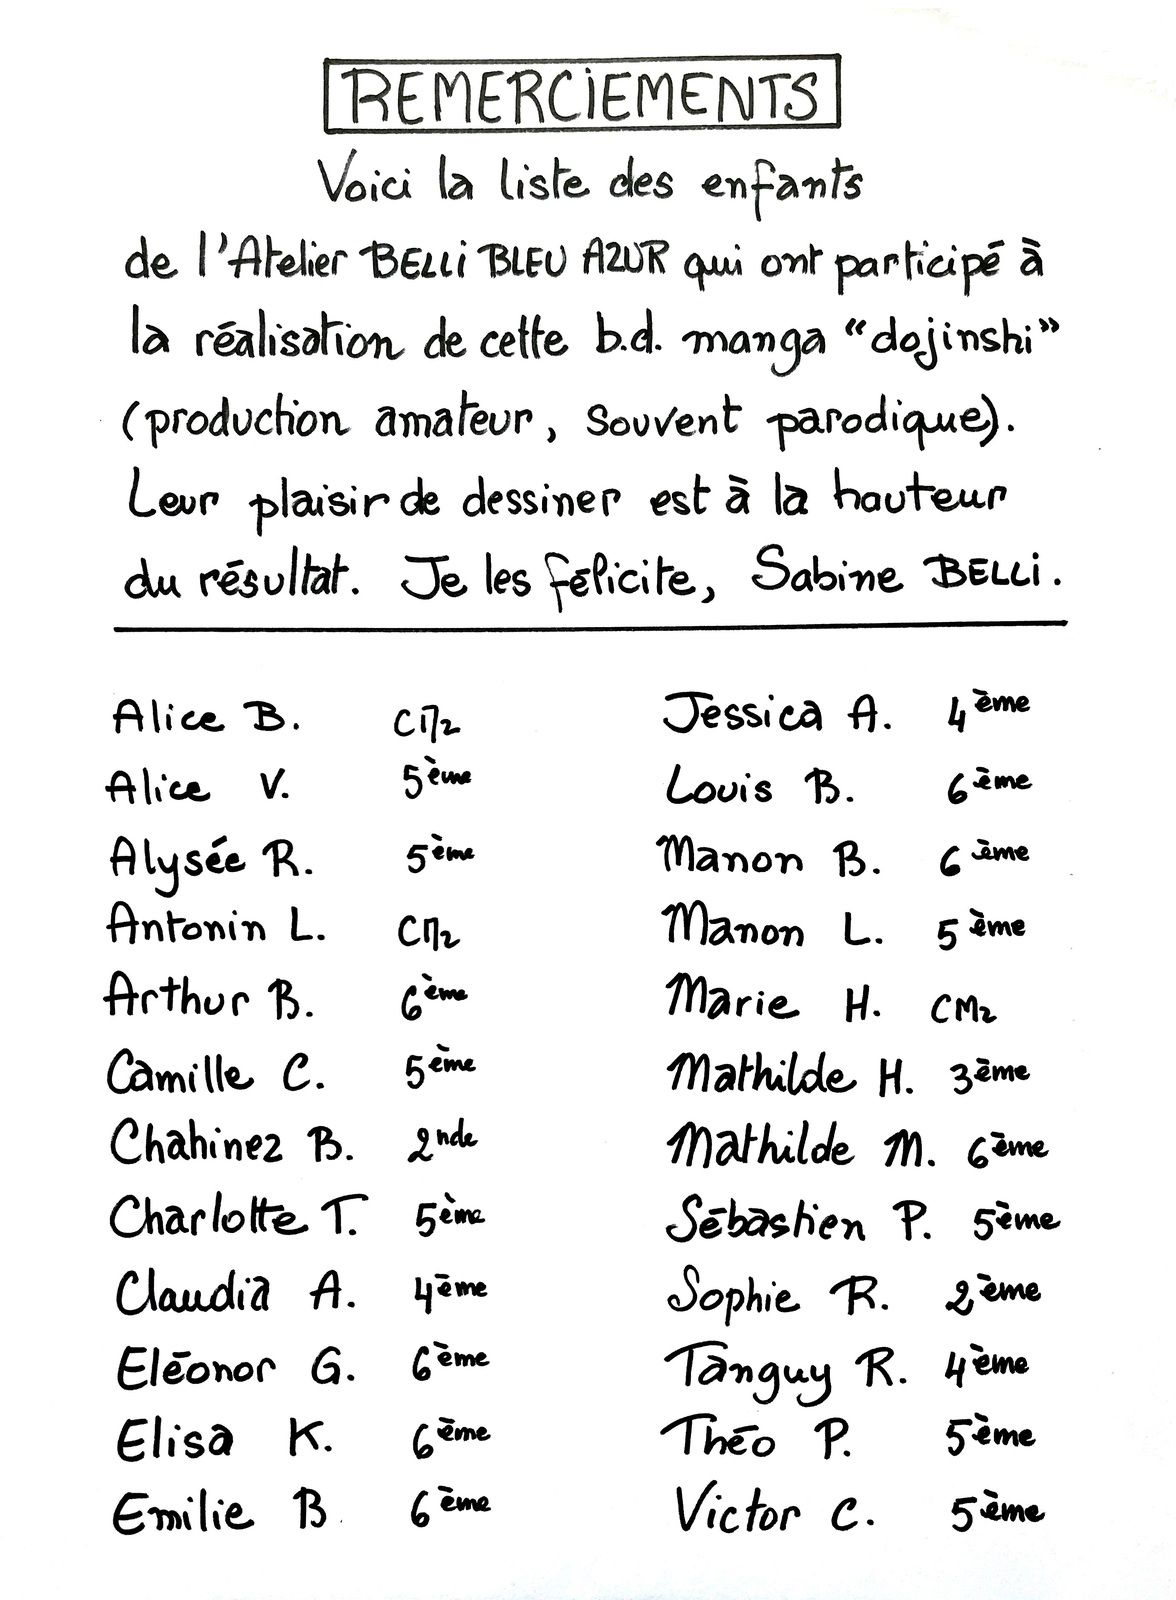 REMERCiEMENTS
Voici la liste des enfants
de l'Atelier BELLi BLEU AZUR qui ont participé à
la réalisation de cette b.d. manga “dojinshi”
(production amateur, souvent parodique).
Leur plaisir de dessiner est à la hauteur
du résultat. Je les félicite, Sabine BELLi.
Alice B. CM2
Alice V. 5ème
Alysée R. 5ème
Antonin L. CM2
Arthur B. 6ème
Camille C. 5ème
Chahinez B. 2nde
Charlotte T. 5ème
Claudia A. 4ème
Eléonor G. 6ème
Elisa K. 6ème
Emilie B. 6ème
Jessica A. 4ème
Louis B. 6ème
Manon B. 6ème
Manon L. 5ème
Marie H. CM2
Mathilde H. 3ème
Mathilde M. 6ème
Sébastien P. 5ème
Sophie R. 2ème
Tanguy R. 4ème
Théo P. 5ème
Victor C. 5ème